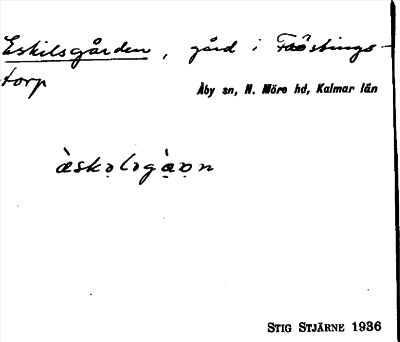 Eskilsgården, gård i
torp
Åby sn, N. Möre hd, Kalmar län
STIG STJÄRNE 1936